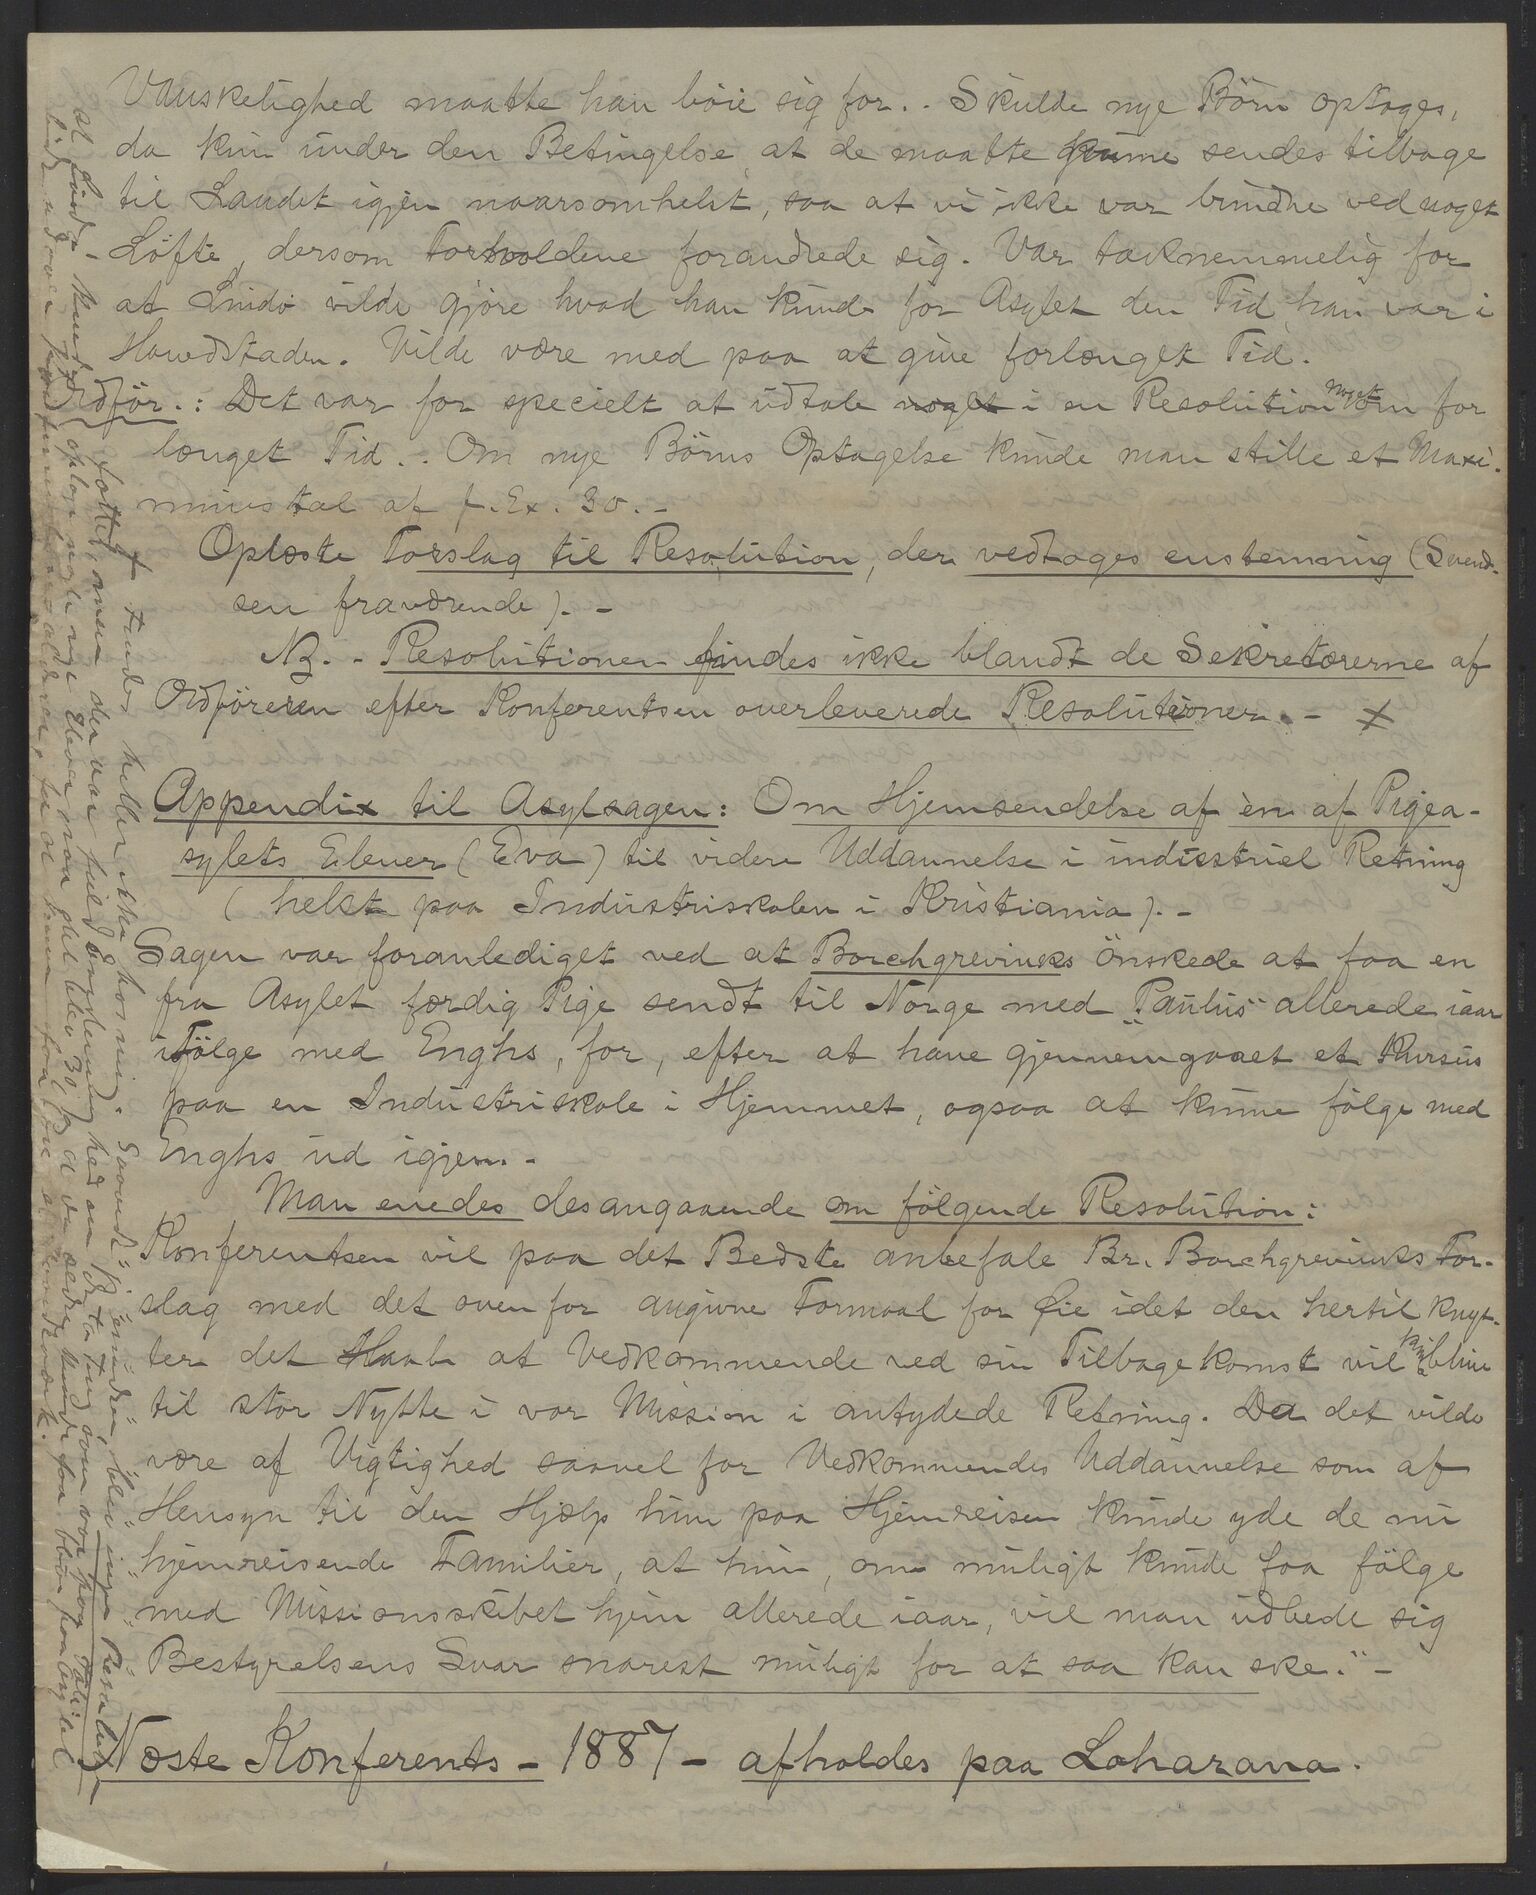 Vanskelighed maatte han böie sig for. . Skulde nye Börn optages,
da kun under den Betingelse, at de maatte kunne sendes tilbage
til Landet igjen naarsomhelst, saa at vi ikke var bundne ved noget
Löfte, dersom Forholdene forandrede sig. Var taknemmelig for
at Lindö vilde gjöre hvad han kunde for Asylet den Tid han var i
Hovedstaden. Vilde være med paa at give forlænget Tid.
Ordför.: Det var for specielt at udtale noget i en Resolution noget om for
længet Tid. . Om nye Börns Optagelse kunde man stille et Maxi-
mumstal af f. Ex. 30. -
Oplæste Forslag til Resolution, der vedtoges enstemmig (Svend-
sen fraværende). -
NB. - Resolutionen findes ikke blandt de Sekretærerne af
Ordföreren efter Konferentsen overleverede Resolutioner. - x
Appendix til Asylsagen: Om Hjemsendelse af èn af Pigea-
sylets Elever (Eva) til videre Uddannelse i industriel Retning
(helst paa Industriskolen i Kristiania). -
Sagen var foranlediget ved at Borchgrevinks önskede at faa en
fra Asylet færdig Pige sendt til Norge med "Paulus" allerede iaar
ifölge med Enghs, for, efter at have gjennemgaaet et Kursus
paa en Industriskole i Hjemmet, ogsaa at kunne fölge med
Enghs ud igjen. -
Man enedes desangaaende om fölgende Resolution:
Konferentsen vil paa det Bedste anbefale Br. Borchgrevinks For-
slag med det ovenfor angivne Formaal for Öie idet den hertil knyt-
ter det Haab at Vedkommende ved sin Tilbagekomst vil blive
til stor Nytte i vor Mission i antydede Retning. Da det vilde
være af Vigtighed saavel for Vedkommendes Uddannelse som af
Hensyn til den Hjælp hun paa Hjemreisen kunde yde de nu
hjemreisende Familier, at hun, om muligt kunde faa fölge
med Missionsskibet hjem allerede iaar, vil man udbede sig
Bestyrelsens Svar snarest muligt for at saa kan ske." -
Næste Konferents - 1887 - afholdes paa Loharano.